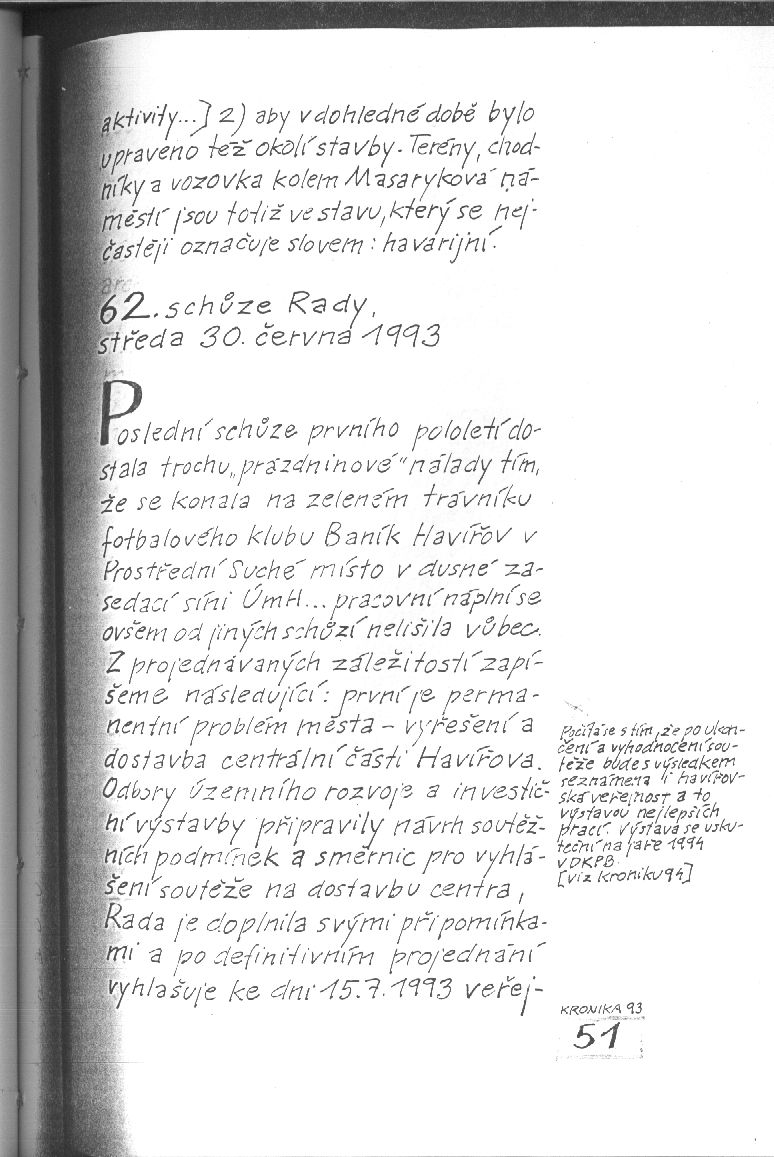 aktivity...] 2) aby v dohledné době bylo
upraveno též okolí stavby. Terény, chod-
níky a vozovka kolem Masarykova ná-
městí jsou totiž ve stavu, který se nej-
častěji označuje slovem: havarijní.
62. schůze Rady,
středa 30. června 1993
Poslední schůze prvního pololetí do-
stala trochu „prázdninové" nálady tím,
že se konala na zeleném trávníku
fotbalového klubu Baník Havířov v
Prostřední Suché místo v dusné za-
sedací síni ÚmH... pracovní náplní se
ovšem od jiných schůzí nelišila vůbec.
Z projednávaných záležitostí zapí-
šeme následující: první je perma-
nentní problém města – vyřešení a
dostavba centrální části Havířova.
Odbory územního rozvoje a investič-
ní výstavby připravily návrh soutěž-
ních podmínek a směrnic pro vyhlá-
šení soutěže na dostavbu centra,
Rada je doplnila svými připomínka-
mi a po definitivním projednání
vyhlašuje ke dni 15.7.1993 veřej-
Počítá se s tím, že po ukon-
čení a vyhodnocení sou-
těže bude s výsledkem
seznámena i havířov-
ská veřejnost a to
výstavou nejlepších
prací. Výstava se usku-
teční na jaře 1994
v DKPB.
[viz kroniku 94]
KRONIKA 93
51